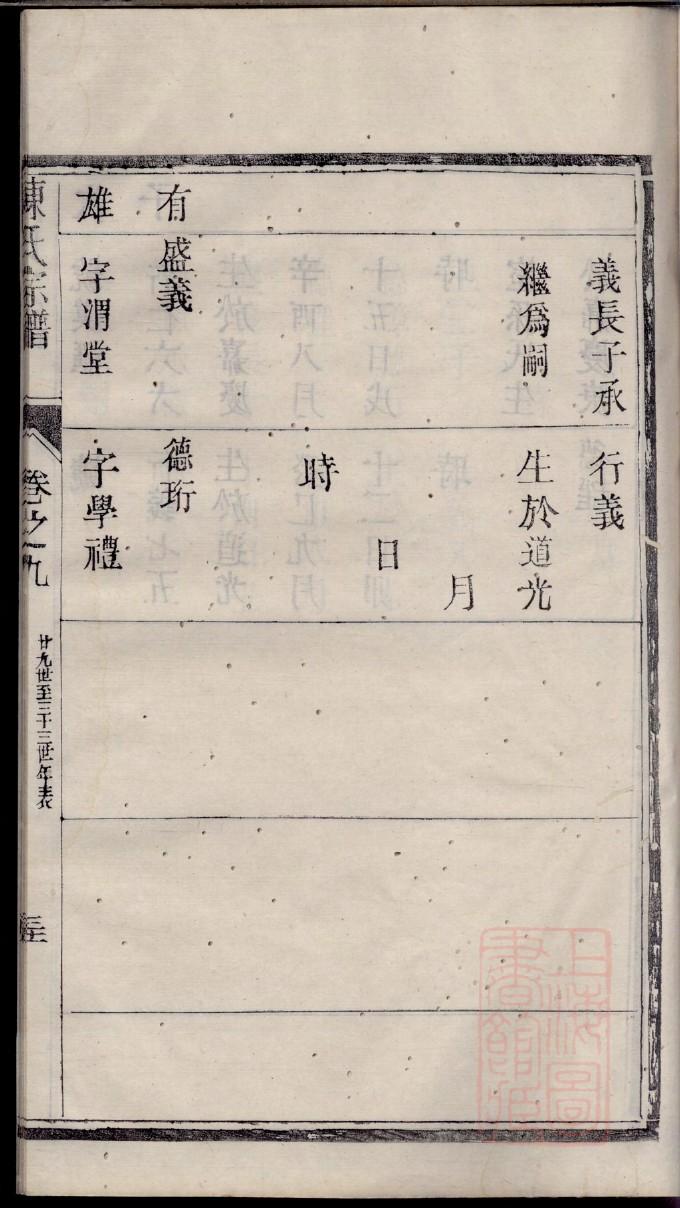 有
雄
義長子承
繼爲嗣
盛義
字渭堂
行義
生於道光
月
日
時
德珩
字學禮
陳氏宗譜
卷之九
廿九世至三十三世年表
上海圖
書館藏